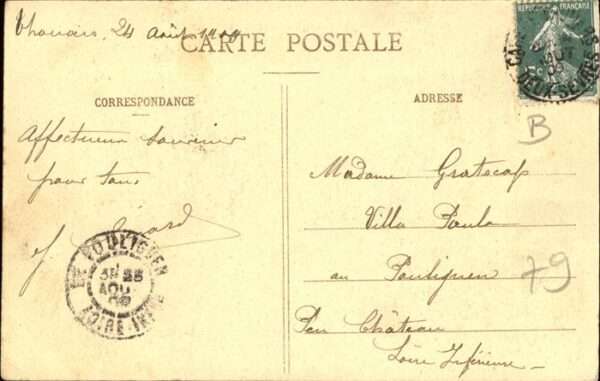 Thouars, 24 Août 1909
CARTE POSTALE
RÉPUBLIQUE FRANÇAISE
DEUX-SÈVRES
CORRESPONDANCE
ADRESSE
B
Affectueux souvenir
pour tous
Girard
LE POULIGUEN
AOU
09
LOIRE-INFRE
Madame Gratecap
Villa Paula
au Pouliguen
79
Château
Loire Inférieure